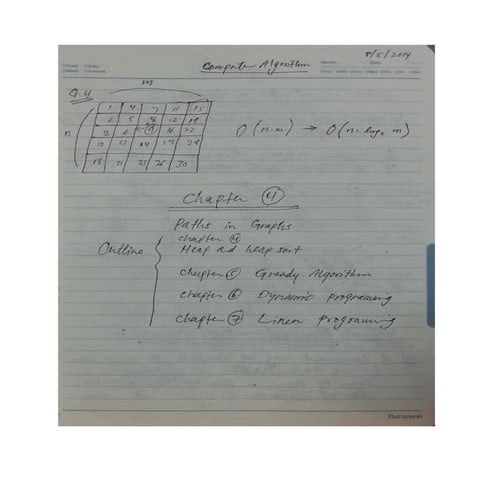 8/15/2019
Computer Algorithm
m
Q.4
1 4 7 11 15
2 5 8 12 19
3 6 9 16 22
10 13 14 17 24
18 21 23 26 30
n
O(n·m) → O(n·log₂ m)
Chapter ④
Paths in Graphs
Outline
chapter ④
Heap ad heap sort
chapter ⑤ Gready Algorithm
chapter ⑥ Dynamic programing
chapter ⑦ Linear Programing